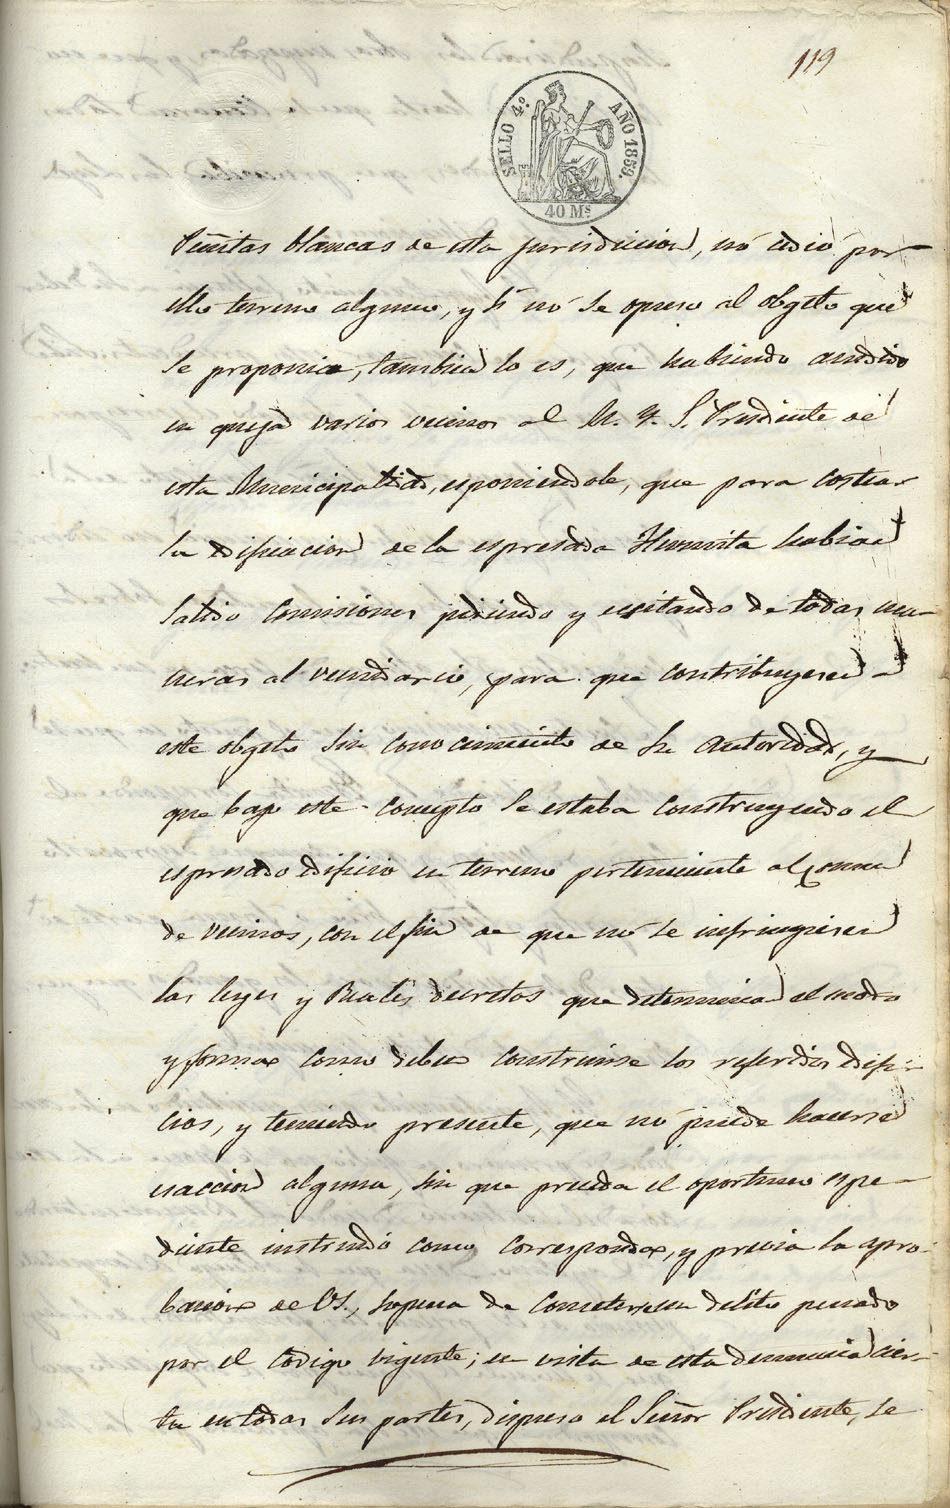 119
SELLO 4.º AÑO 1859.
40 Ms
Peñitas blancas de esta jurisdiccion, nó cedió por
ello terreno alguno, y si nó se opuso al obgeto que
se proponia, tambien lo es, que habiendo acudido
en queja varios vecinos al M. Y. S. Presidente de
esta Municipalidad, esponiendole, que para costear
la edificacion de la espresada Hermita habian
salido comisiones pidiendo y escitando de todas ma-
neras al vecindario, para que contribuyesen a
este obgeto sin conocimiento de su autoridad, y
que bajo este concepto se estaba construyendo el
espresado edificio en terreno perteneciente al comun
de vecinos, con el fin de que nó se infringiesen
las leyes y Reales decretos que determinan el modo
y forma como deben construirse los referidos edifi-
cios, y teniendo presente, que nó puede hacerse
esaccion alguna, sin que preceda el oportuno espe-
diente instruido como corresponde, y previa la apro-
bacion de VS., so pena de cometerse un delito penado
por el codigo vigente; en vista de esta denuncia cier-
ta en todas sus partes, dispuso el Señor Presidente, se